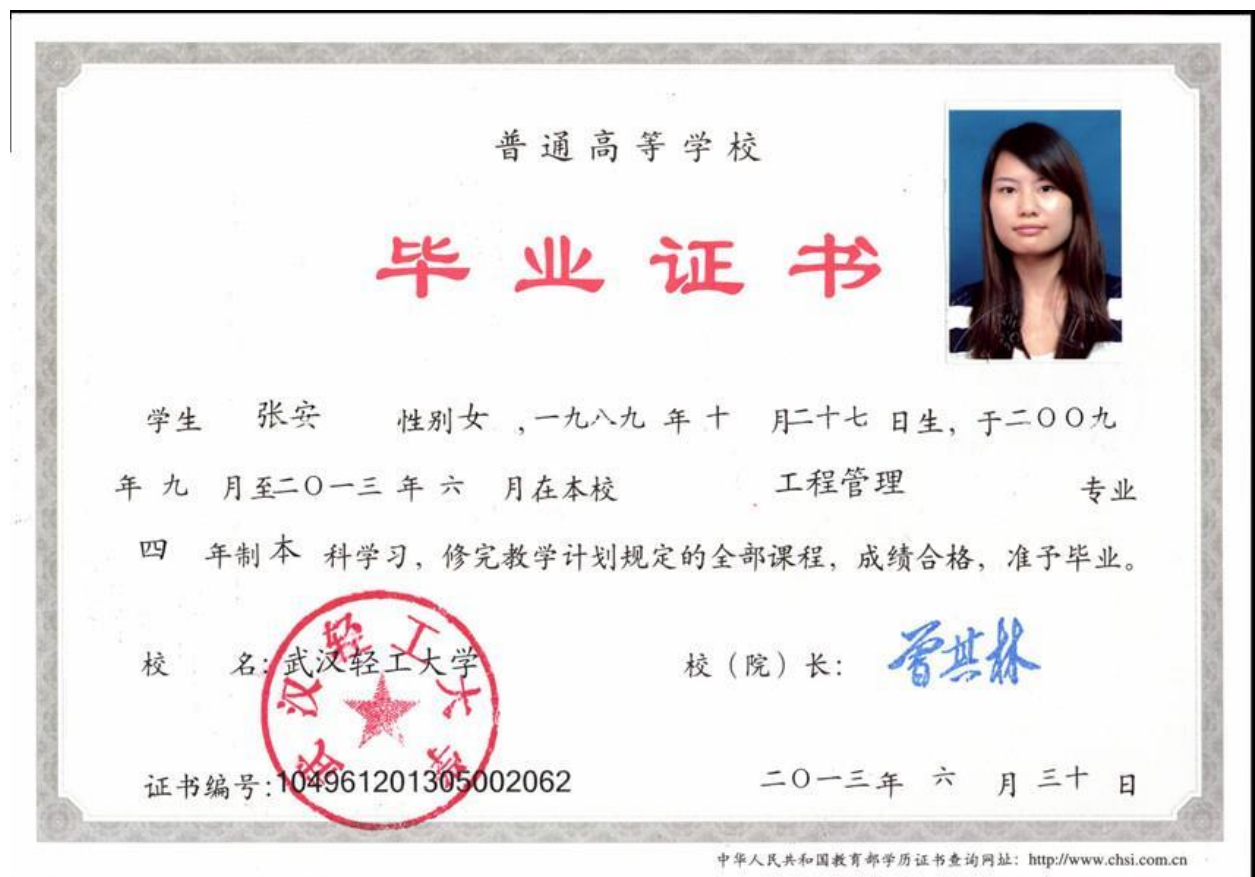 普通高等学校
毕业证书
学生 张安 性别 女 ,一九八九 年 十 月二十七 日生, 于二〇〇九
年 九 月至二〇一三 年 六 月在本校 工程管理 专业
四 年制 本 科学习, 修完教学计划规定的全部课程, 成绩合格, 准予毕业。
校 名: 武汉轻工大学 校(院)长: 曾其林
武汉轻工大学
证书编号:104961201305002062 二〇一三年 六 月 三十 日
中华人民共和国教育部学历证书查询网址: http://www.chsi.com.cn